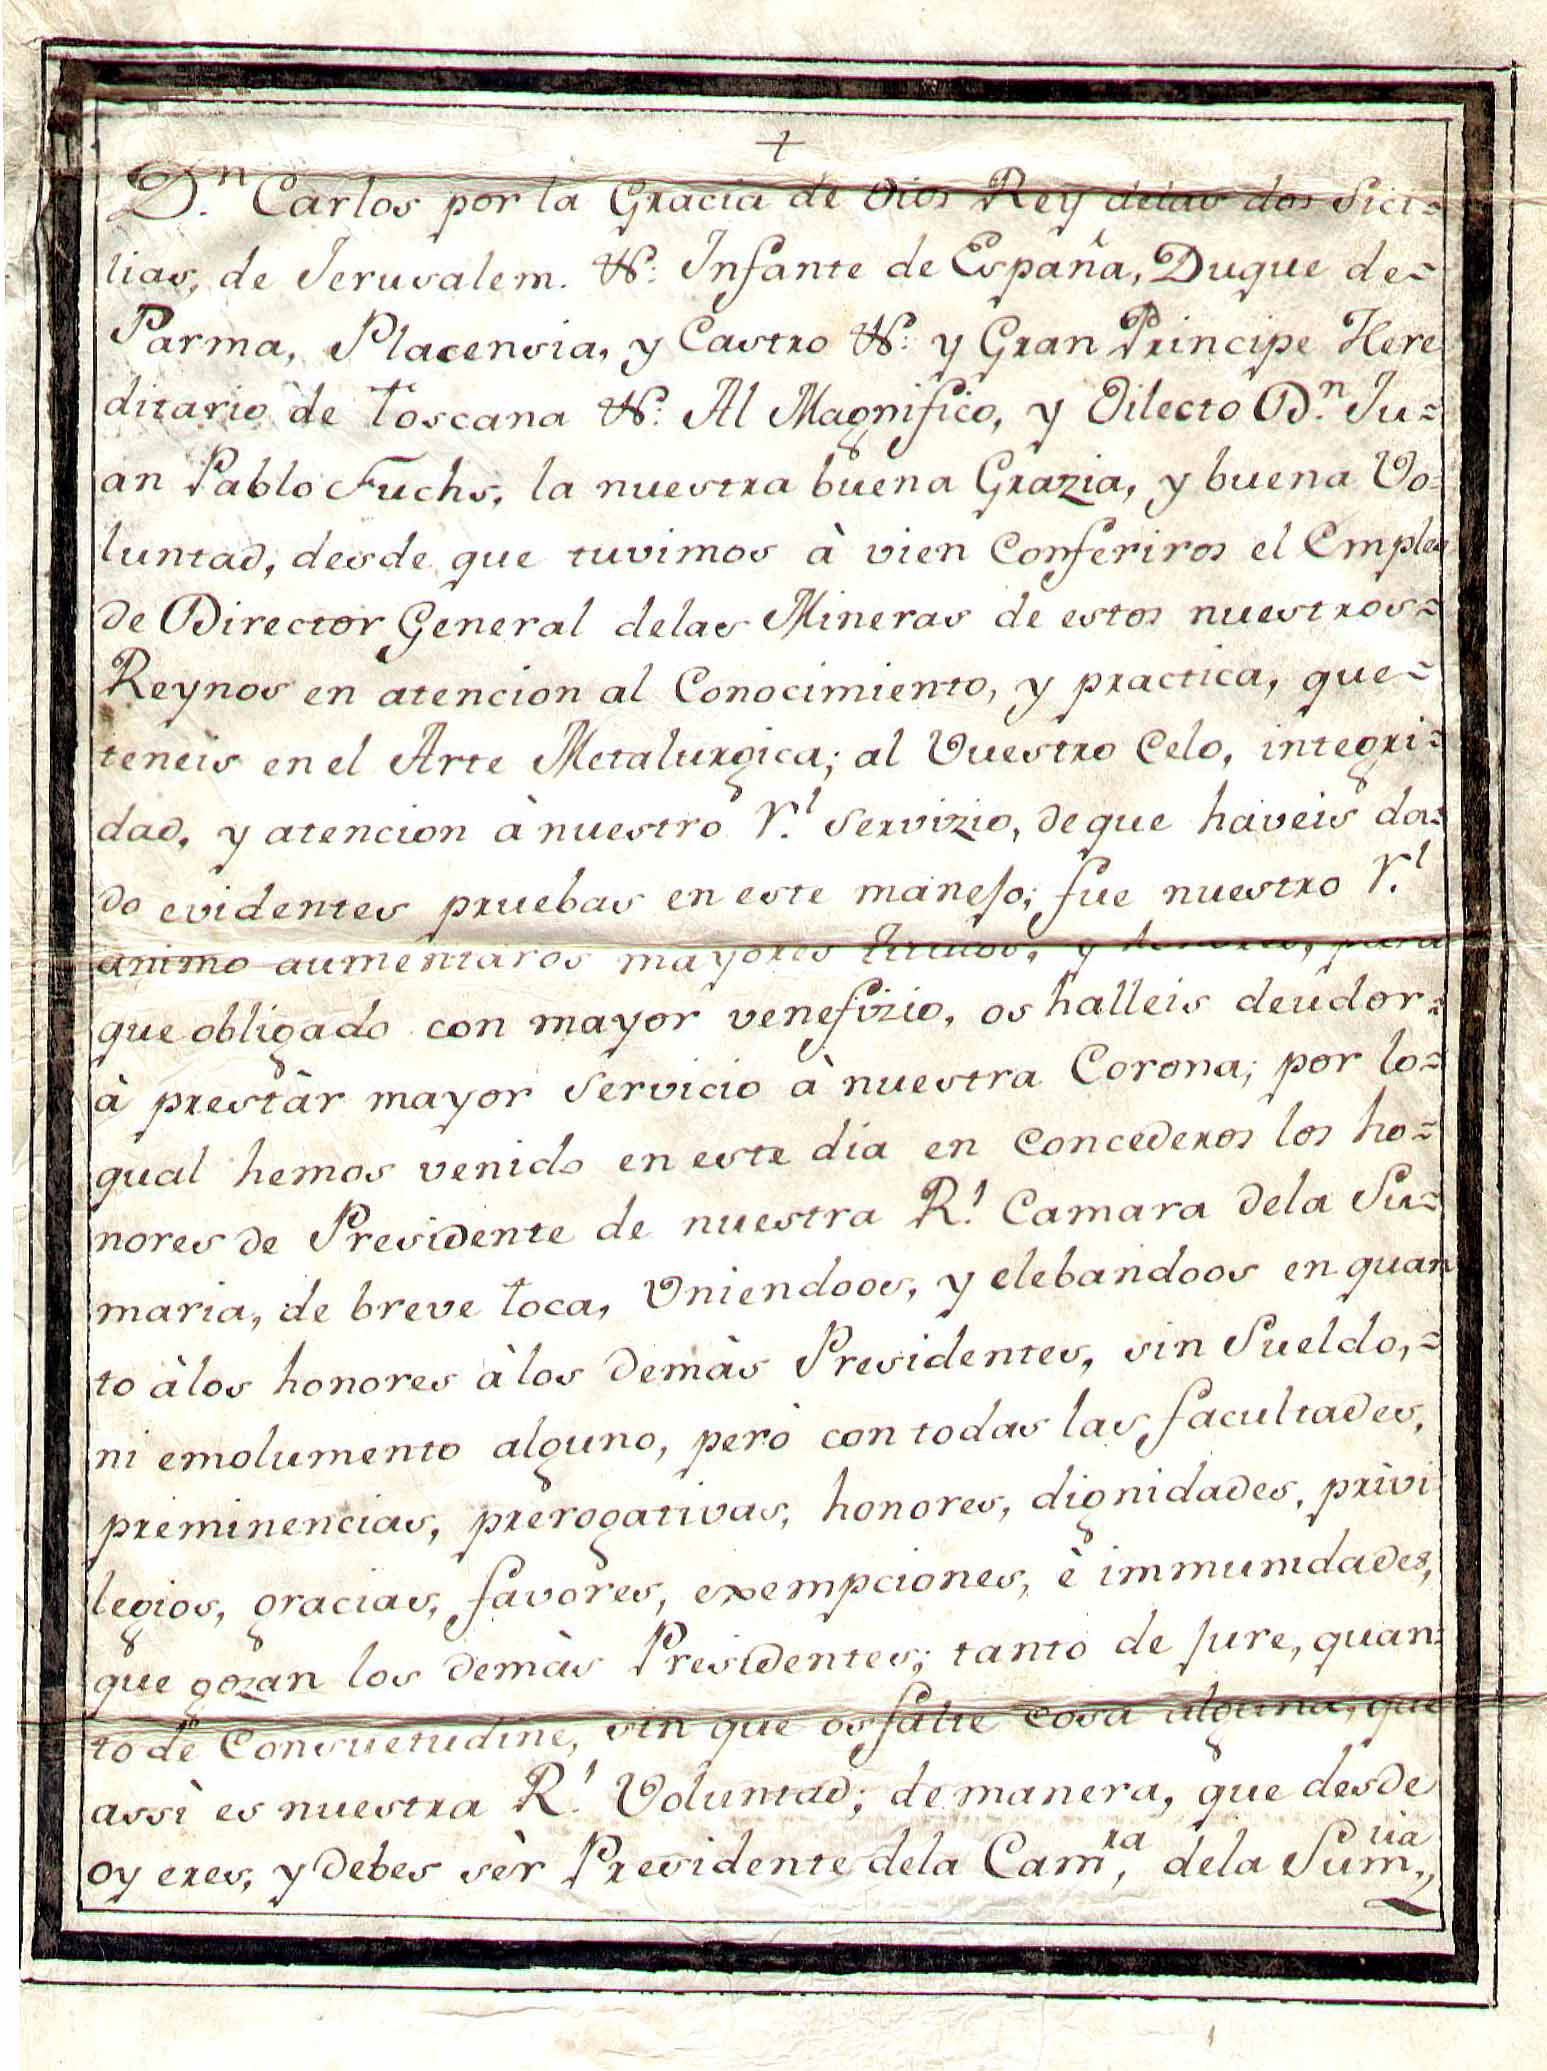 +
D.n Carlos por la Gracia de Dios Rey delas dos Sici=
lias, de Jerusalem. &: Infante de España, Duque de=
Parma, Placensia, y Castro &: y Gran Principe Here
ditario de Toscana &: Al Magnifico, y Dilecto D.n Ju=
an Pablo Fuchs, la nuestra buena Grazia, y buena Vo=
luntad, desde que tuvimos à vien Conferiros el Empleo
de Director General delas Mineras de estos nuestros=
Reynos en atencion al Conocimiento, y practica, que=
teneis en el Arte Metalurgica; al Vuestro Celo, integri=
dad, y atencion à nuestro r.l Servizio, de que haveis da=
do evidentes pruebas en este manejo; fue nuestro r.l
animo aumentaros mayores titulos, y honores, para
que obligado con mayor venefizio, os halleis deudor=
à prestàr mayor Servicio à nuestra Corona; por lo=
qual hemos venido en este dia en Concederos los ho=
nores de Presidente de nuestra R.l Camara dela Su=
maria, de breve toca, Uniendoos, y elebandoos en quan
to àlos honores àlos demàs Presidentes, sin Sueldo,=
ni emolumento alguno, però con todas las facultades,
preminencias, prerogativas, honores, dignidades, privi
legios, gracias, favores, exempciones, è immunidades,
que gozan los demàs Presidentes; tanto de jure, quan=
to de Consuetudine, sin que os falte cosa alguna, que
assì es nuestra R.l Voluntad; de manera, que desde
oy eres, y debes sèr Presidente dela Cam.ra, dela Sum.ria